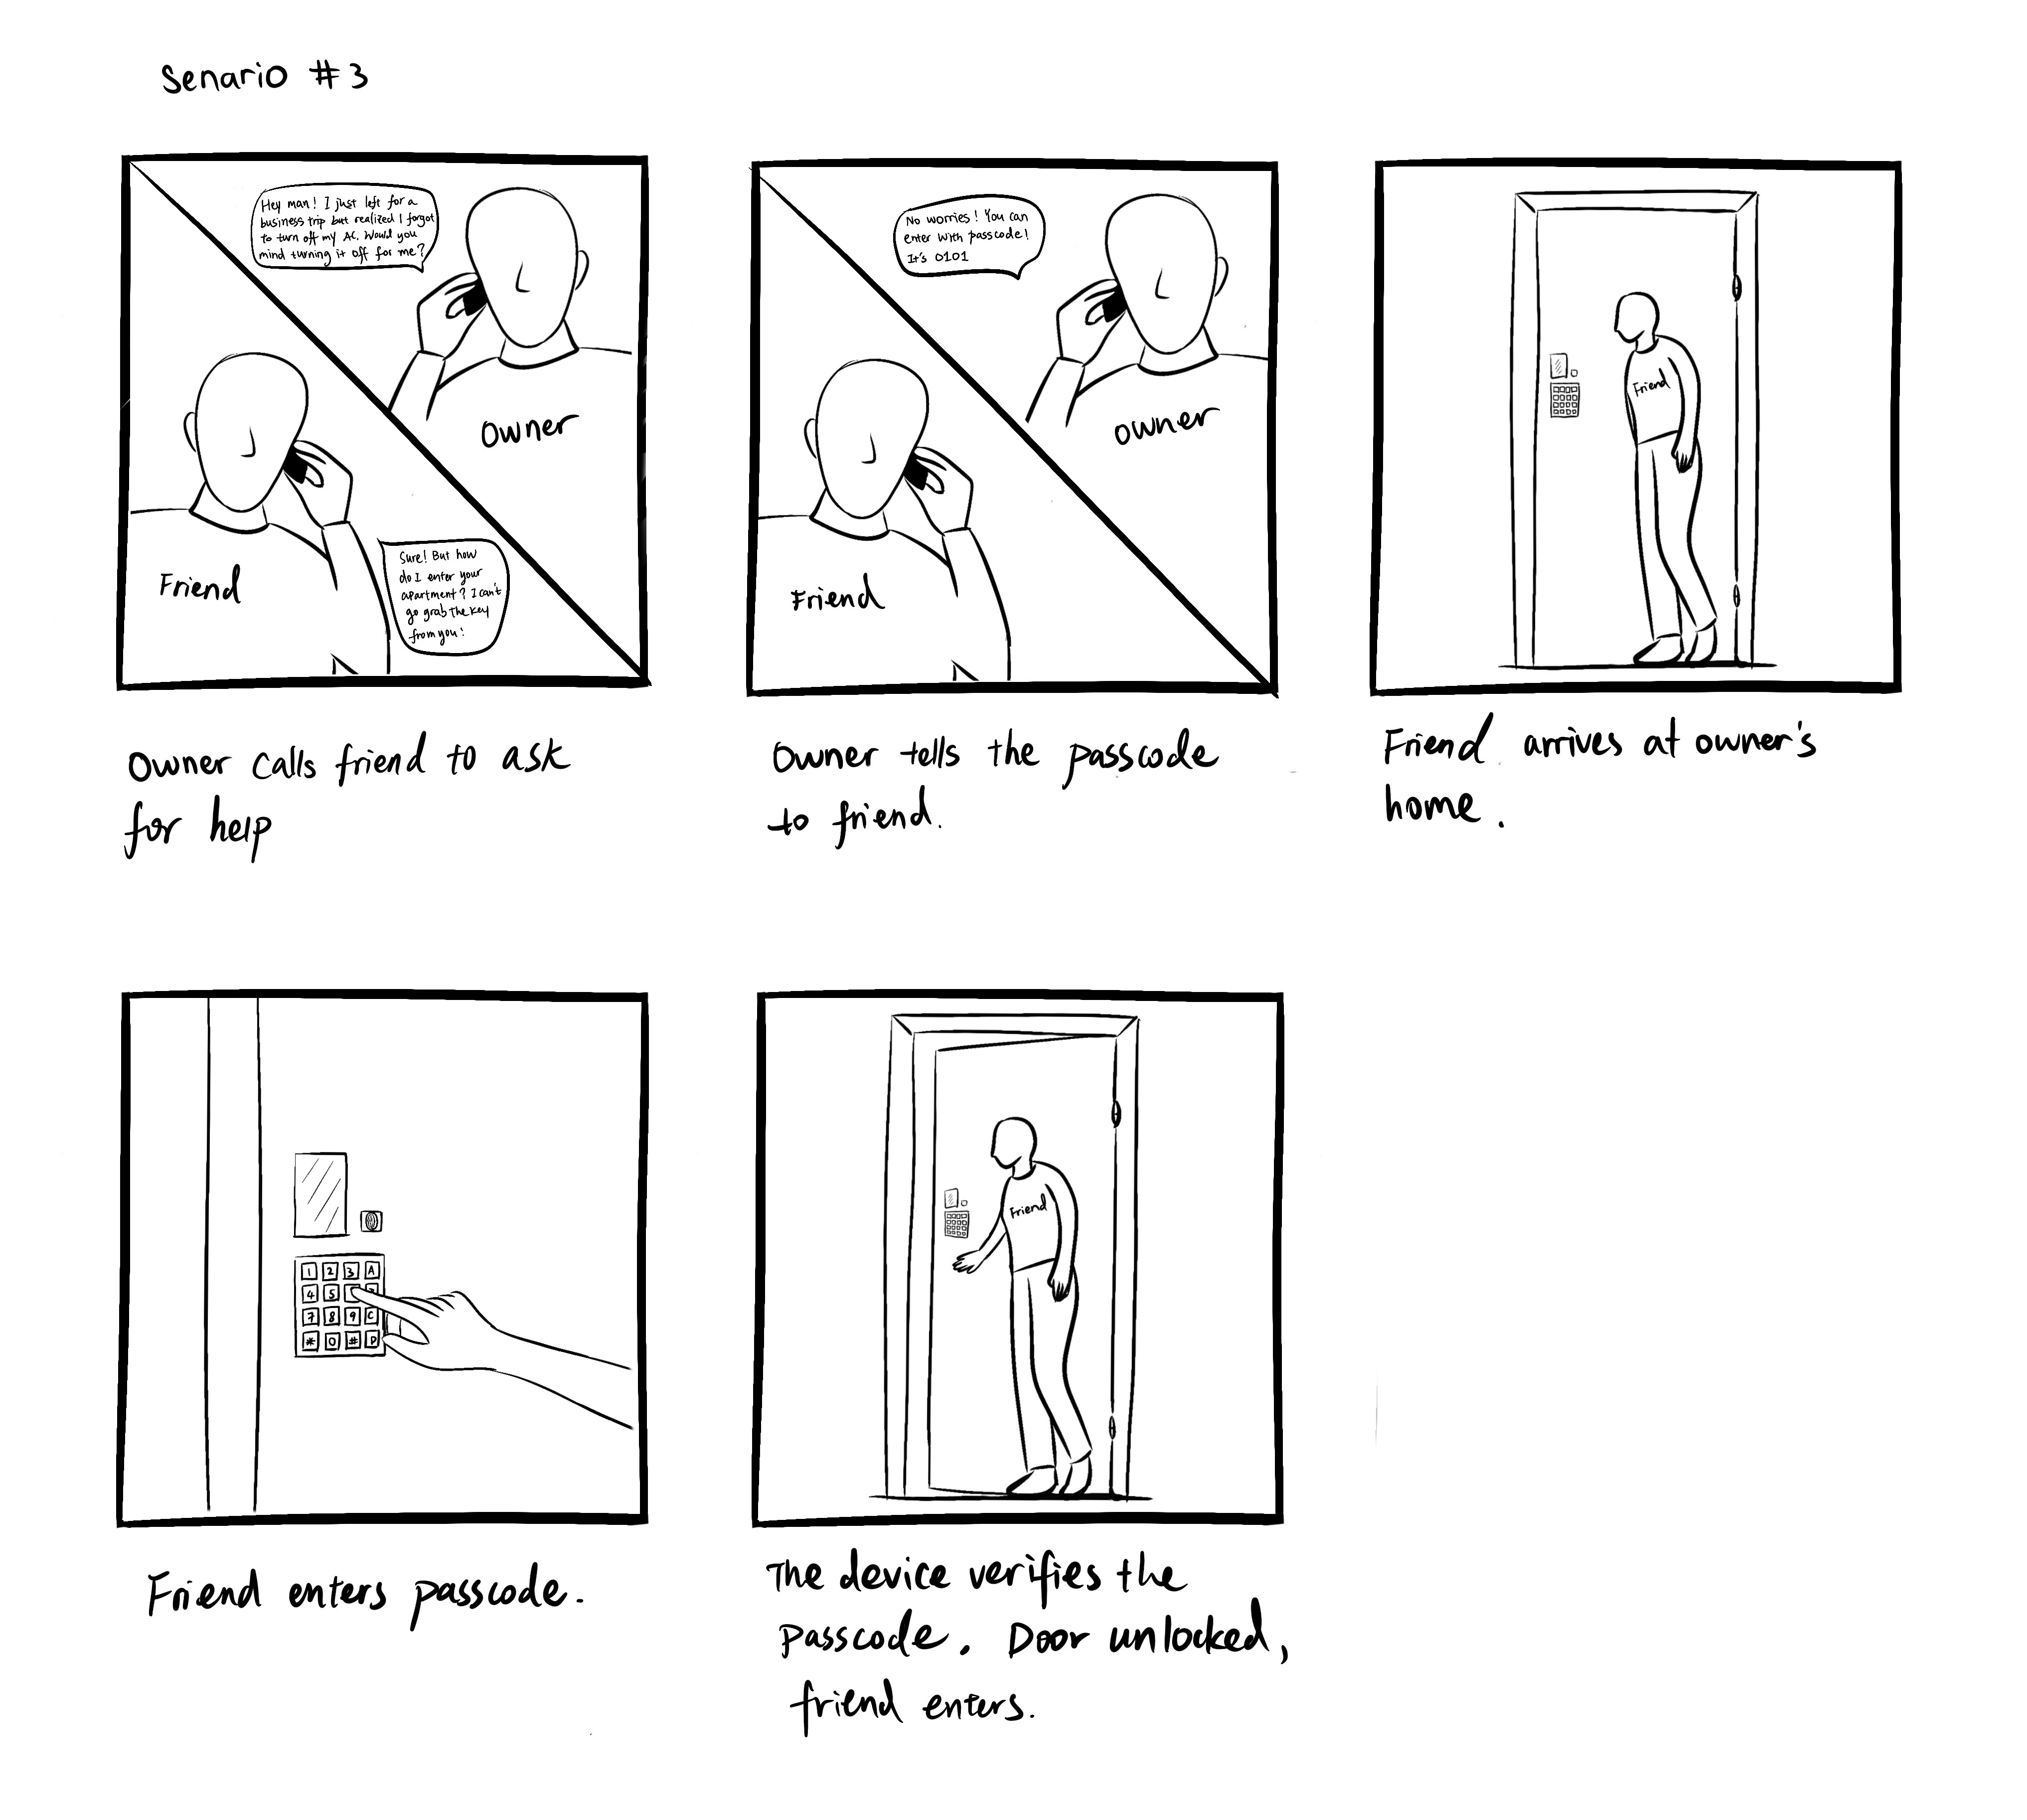 Senario #3
Hey man! I just left for a
business trip but realized I forgot
to turn off my AC. Would you
mind turning it off for me?
Owner
Friend
Sure! But how
do I enter your
apartment? I can't
go grab the key
from you!
Owner calls friend to ask
for help
No worries! You can
enter with passcode!
It's 0101
Owner
Friend
Owner tells the passcode
to friend.
Friend
Friend arrives at owner's
home.
1 2 3 A
4 5
7 8 9 C
* 0 # D
Friend enters passcode.
Friend
The device verifies the
passcode. Door unlocked,
friend enters.